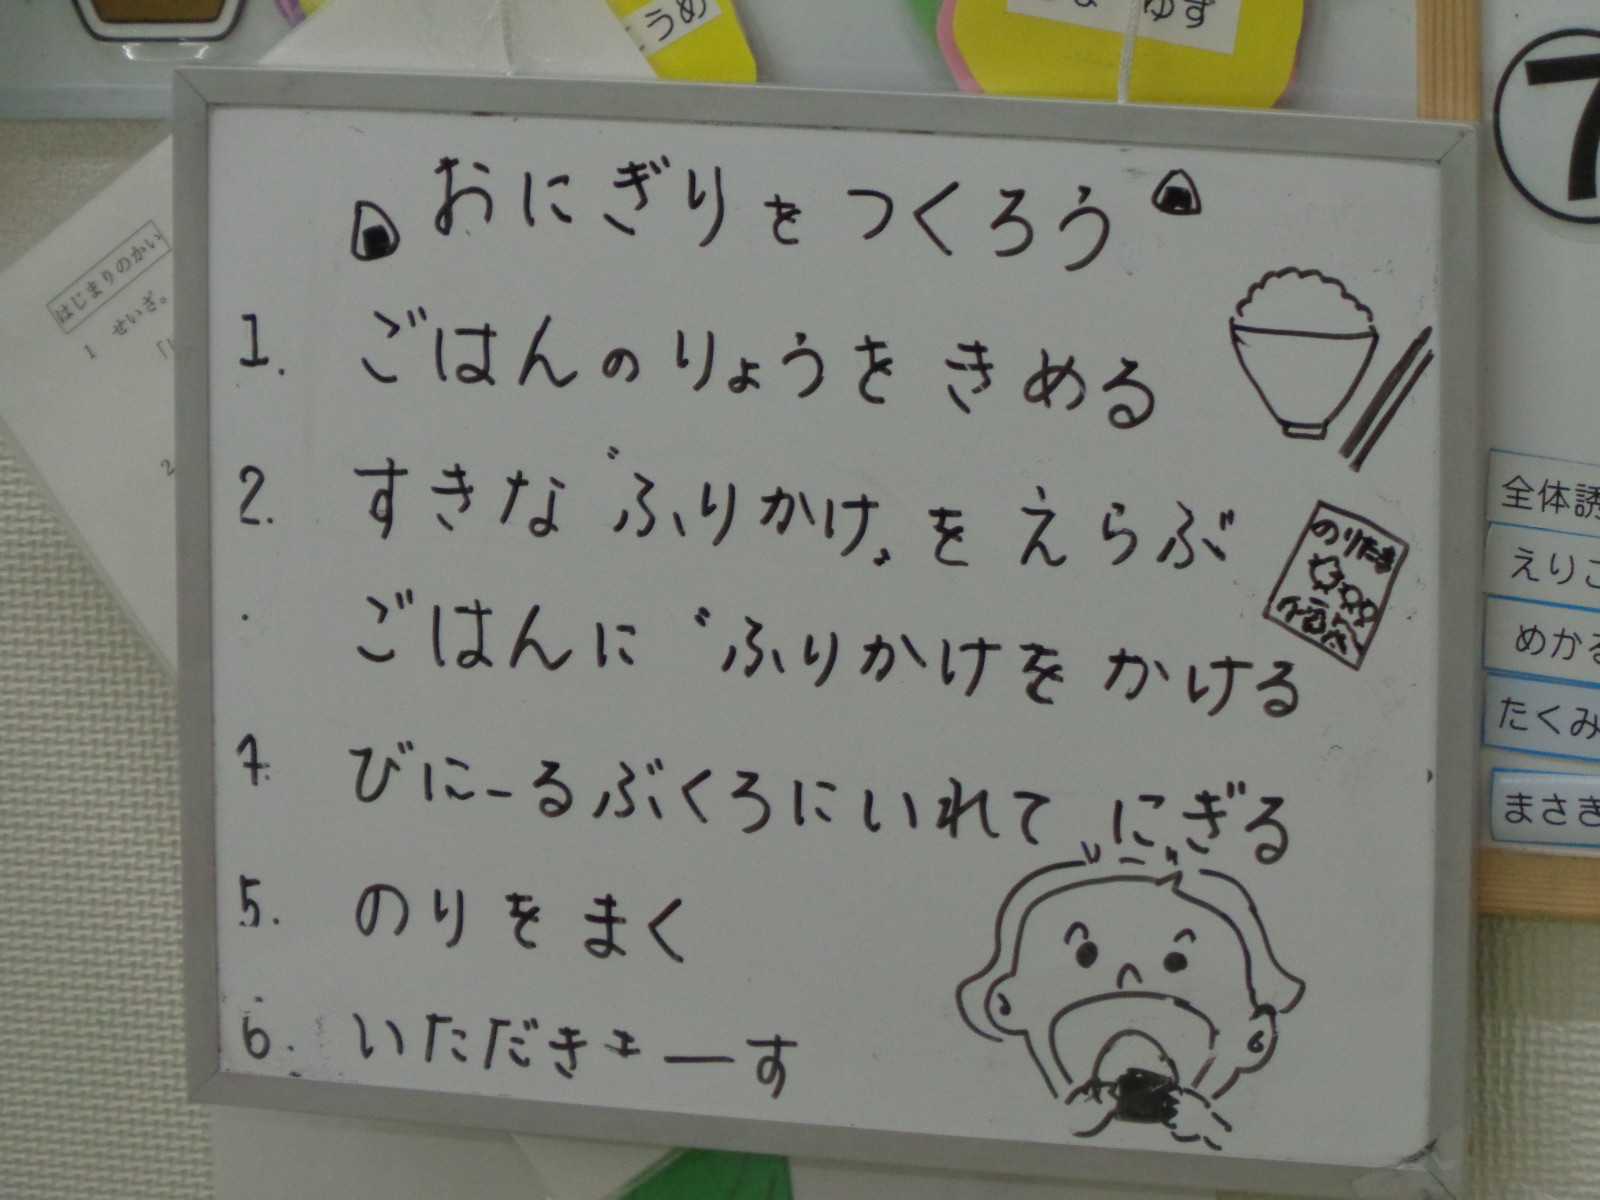 うめ
ゆず
7
はじまりのかい
1 せいざ。
2
おにぎりをつくろう
1. ごはんのりょうをきめる
2. すきな"ふりかけ"をえらぶ
のりたま
ごはんに"ふりかけをかける
びにーるぶくろにいれて にぎる
5. のりをまく
6. いただきまーす
全体誘
えりこ
めかる
たくみ
まさき